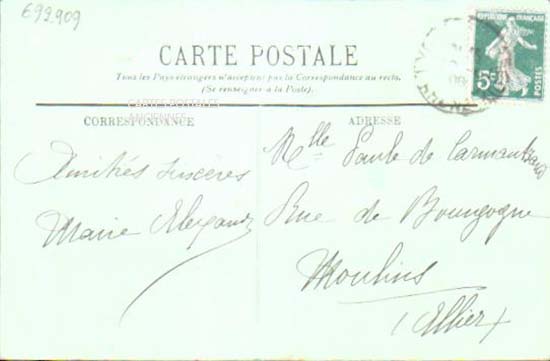 692909
RÉPUBLIQUE FRANÇAISE
5c
POSTES
CARTE POSTALE
Tous les Pays étrangers n'acceptent pas la Correspondance au recto.
(Se renseigner à la Poste).
CARTES POSTALES
ANCIENNES
CORRESPONDANCE
Amitiés sincères
Marie
ADRESSE
Mlle Paule de
Rue de Bourgogne
Moulins
(Allier)